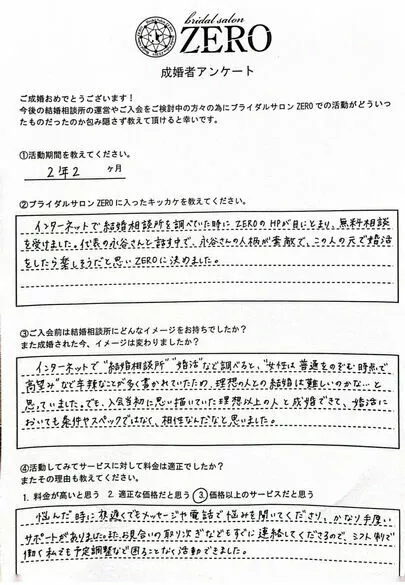 bridal salon
ZERO
成婚者アンケート
ご成婚おめでとうございます！
今後の結婚相談所の運営やご入会をご検討中の方々の為にブライダルサロンZEROでの活動がどういっ
たものだったのか包み隠さず教えて頂けると幸いです。
①活動期間を教えてください。
2年2 ヶ月
②ブライダルサロンZEROに入ったキッカケを教えてください。
インターネットで結婚相談所を調べていた時にZEROのHPが目にとまり、無料相談
を受けました。代表の永谷さんと話す中で、永谷さんの人柄が素敵で、この人の元で婚活
をしたら楽しそうだと思いZEROに決めました。
③ご入会前は結婚相談所にどんなイメージをお持ちでしたか？
また成婚された今、イメージは変わりましたか？
インターネットで"結婚相談所""婚活"などで調べると、"女性は普通をのぞむ時点で
高望み"など辛辣なことが多く書かれていたため、理想の人との結婚は難しいのかな…と
思っていました。でも、入会当初に思い描いていた理想以上の人と成婚できて、婚活に
おいても条件やスペックではなく、相性なんだなと思いました。
④活動してみてサービスに対して料金は適正でしたか？
またその理由も教えてください。
1. 料金が高いと思う 2. 適正な価格だと思う ③.価格以上のサービスだと思う
悩んだ時に夜遅くでもメッセージや電話で悩みを聞いてくださり、かなり手厚い
サポートがありました。またお見合いの取り次ぎなどもすぐに連絡してくださるので、シフト制で
働く私でも予定調整など困ることなく活動できました。